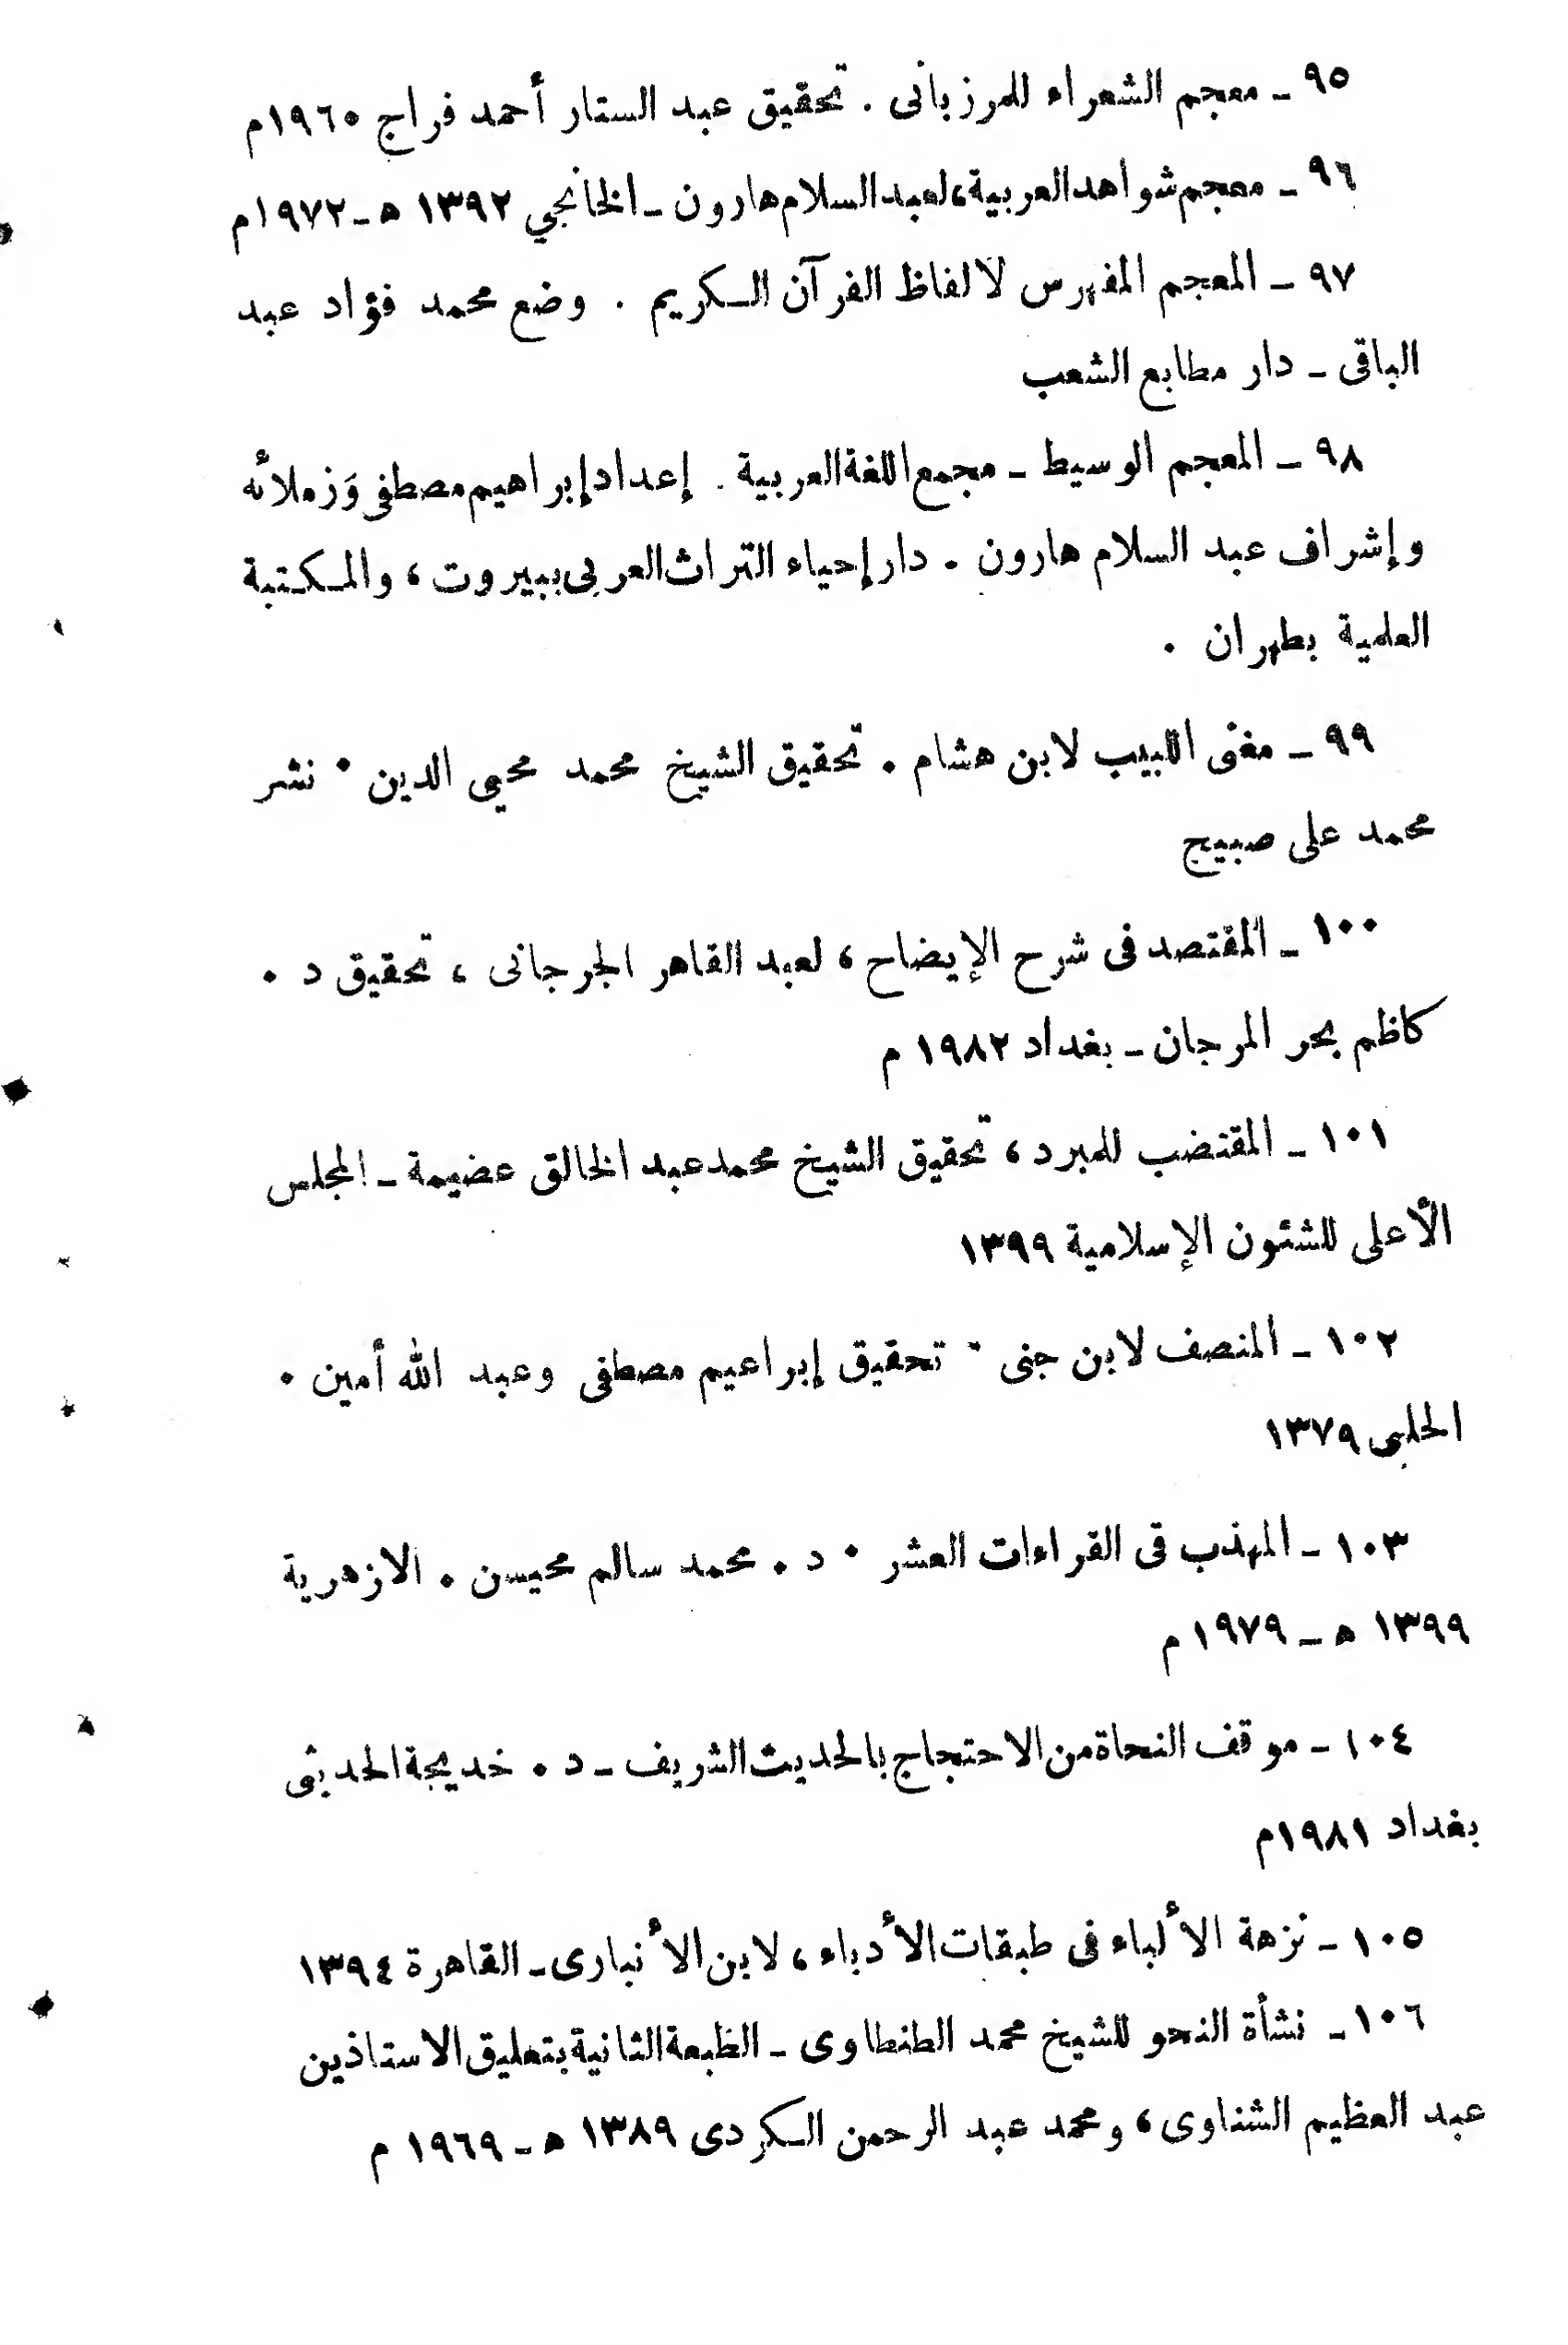 ٩٥ ـ معجم الشعراء للمرزبانى . تحقيق عبد الستار أحمد فراج ١٩٦٠م
٩٦ ـ معجم شواهد العربية، لعبد السلام هارون ـ الخانجي ١٣٩٢ ه ـ ١٩٧٢م
٩٧ ـ المعجم المفهرس لالفاظ القرآن الكريم . وضع محمد فؤاد عبد
الباقى ـ دار مطابع الشعب
٩٨ ـ المعجم الوسيط ـ مجمع اللغة العربية . إعداد إبراهيم مصطفى وَزملائه
وإشراف عبد السلام هارون . دار إحياء التراث العربى ببيروت ، والمكتبة
العلمية بطهران .
٩٩ ـ مغنى اللبيب لابن هشام . تحقيق الشيخ محمد محيى الدين . نشر
محمد على صبيح
١٠٠ ـ المقتصد فى شرح الإيضاح ، لعبد القاهر الجرجانى ، تحقيق د .
كاظم بحر المرجان ـ بغداد ١٩٨٢ م
١٠١ ـ المقتضب للمبرد ، تحقيق الشيخ محمد عبد الخالق عضيمة ـ المجلس
الأعلى للشئون الإسلامية ١٣٩٩
١٠٢ ـ المنصف لابن جنى . تحقيق إبراهيم مصطفى وعبد الله أمين .
الحلبى ١٣٧٩
١٠٣ ـ المهذب فى القراءات العشر . د . محمد سالم محيسن . الازهرية
١٣٩٩ ه ـ ١٩٧٩ م
١٠٤ ـ موقف النحاة من الاحتجاج بالحديث الشريف ـ د . خديجة الحديثى
بغداد ١٩٨١م
١٠٥ ـ نزهة الألباء فى طبقات الأدباء ، لابن الأنبارى ـ القاهرة ١٣٩٤
١٠٦ ـ نشأة النحو للشيخ محمد الطنطاوى ـ الطبعة الثانية بتعليق الاستاذين
عبد العظيم الشناوى ، ومحمد عبد الرحمن الكردى ١٣٨٩ ه ـ ١٩٦٩ م